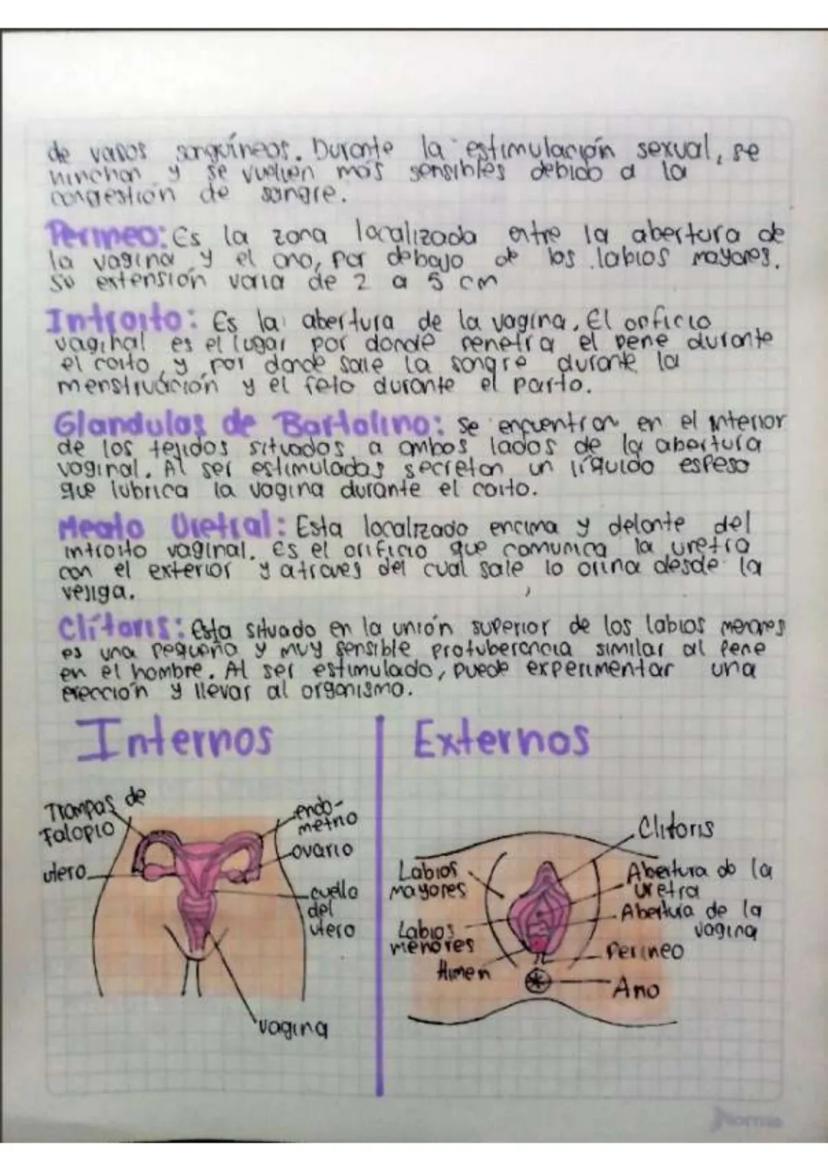 de vasos sanguíneos. Durante la estimulación sexual, se
hinchan y se vuelven más sensibles debido a la
congestión de sangre.
Perineo: Es la zona localizada entre la abertura de
la vagina y el ano, por debajo de los labios mayores.
Su extensión varia de 2 a 5 cm
Introito: Es la abertura de la vagina. El orificio
vaginal es el lugar por donde penetra el pene durante
el coito, y por donde sale la sangre durante la
menstruación y el feto durante el parto.
Glandulas de Bartolino: Se encuentran en el interior
de los tejidos situados a ambos lados de la abertura
vaginal. Al ser estimuladas secretan un líquido espeso
que lubrica la vagina durante el coito.
Meato Uretral: Esta localizado encima y delante del
introito vaginal. Es el orificio que comunica la uretra
con el exterior y atraves del cual sale lo orina desde la
vejiga.
Clítoris: Esta situado en la unión superior de los labios menores
es una pequeña y muy sensible protuberancia similar al pene
en el hombre. Al ser estimulado, puede experimentar una
erección y llevar al organismo.
Internos
Externos
Trompas de
Falopio
utero
endo-
metrio
ovario
cuello
del
utero
vagina
Labios
mayores
Labios
menores
Himen
Clitoris
Abertura de la
uretra
Abertura de la
vagina
Perineo
Ano
Norma